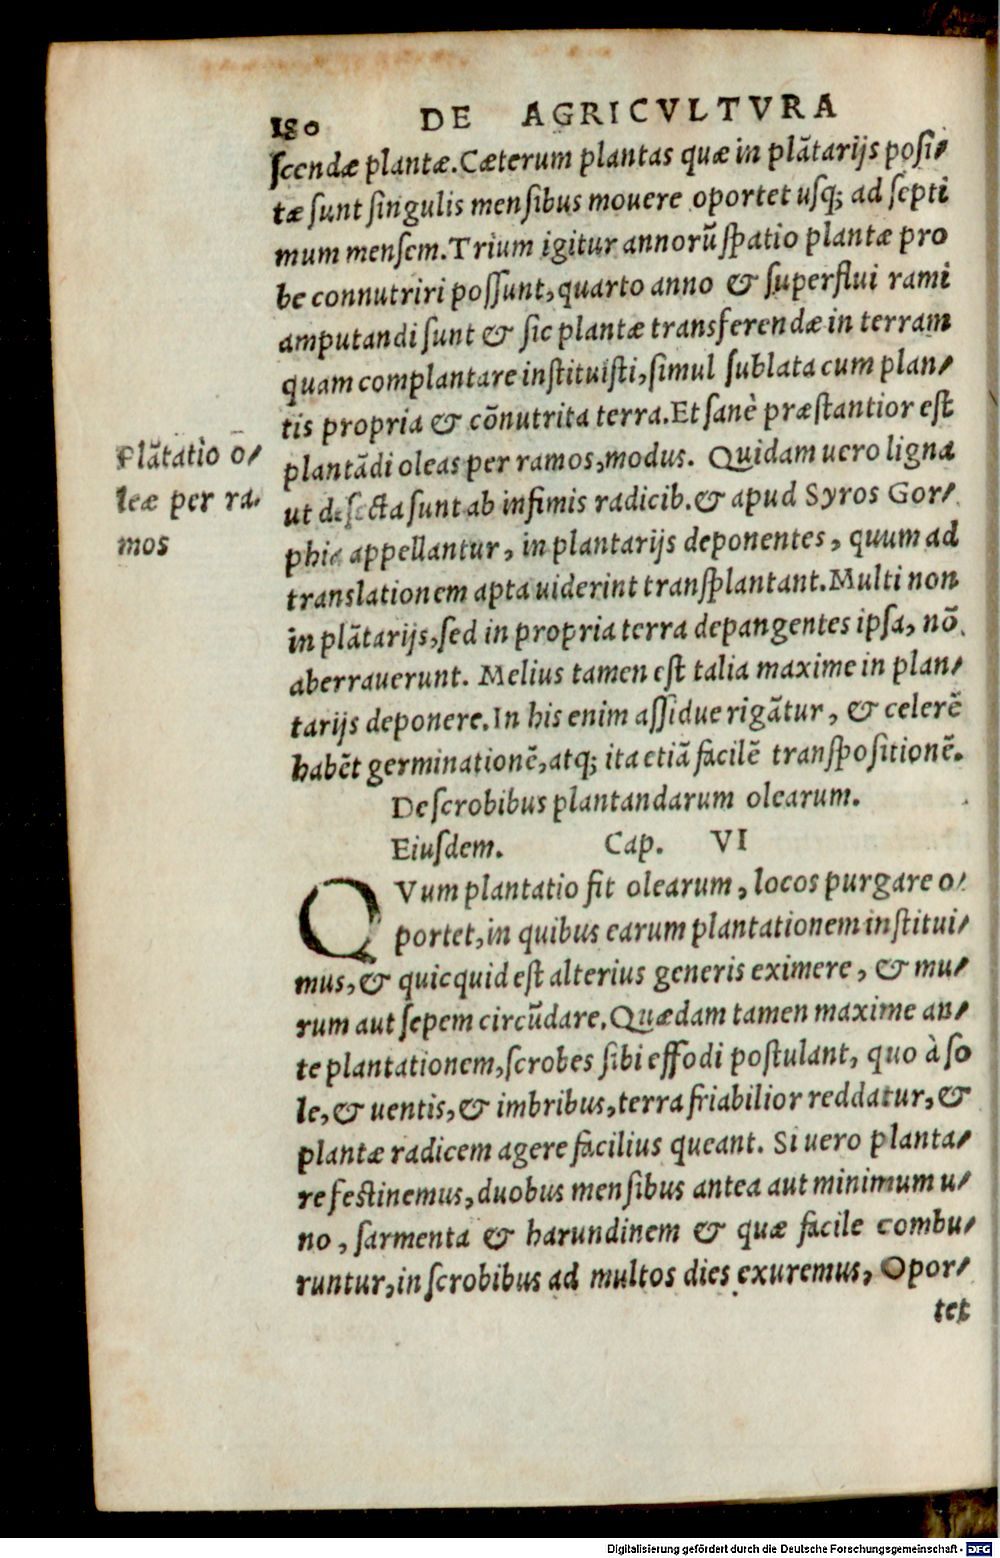 180 DE AGRICVLTVRA
ſcendæ plantæ. Cæterum plantas quæ in plãtarijs poſi-
tæ ſunt ſingulis menſibus mouere oportet uſq; ad ſepti
mum menſem. Trium igitur annorũ ſpatio plantæ pro
be connutriri poſſunt, quarto anno & ſuperflui rami
amputandi ſunt & ſic plantæ transferendæ in terram
quam complantare inſtituiſti, ſimul ſublata cum plan-
tis propria & cõnutrita terra. Et ſanè præſtantior eſt
plantãdi oleas per ramos, modus. Quidam uero ligna
ut deſecta ſunt ab infimis radicib. & apud Syros Gor-
phia appellantur, in plantarijs deponentes, quum ad
translationem apta uiderint tranſplantant. Multi non
in plãtarijs, ſed in propria terra depangentes ipſa, nõ
aberrauerunt. Melius tamen eſt talia maxime in plan-
tarijs deponere. In his enim aſſidue rigãtur, & celerẽ
habẽt germinationẽ, atq; ita etiã facilẽ tranſpoſitionẽ.
Plãtatio o-
leæ per ra-
mos
De ſcrobibus plantandarum olearum.
Eiuſdem. Cap. VI
QVum plantatio fit olearum, locos purgare o-
portet, in quibus earum plantationem inſtitui-
mus, & quicquid eſt alterius generis eximere, & mu-
rum aut ſepem circũdare. Quædam tamen maxime an-
te plantationem, ſcrobes ſibi effodi poſtulant, quo à ſo
le, & uentis, & imbribus, terra friabilior reddatur, &
plantæ radicem agere facilius queant. Si uero planta-
re feſtinemus, duobus menſibus antea aut minimum u-
no, ſarmenta & harundinem & quæ facile combu-
runtur, in ſcrobibus ad multos dies exuremus, Opor-
tet
Digitalisierung gefördert durch die Deutsche Forschungsgemeinschaft - DFG